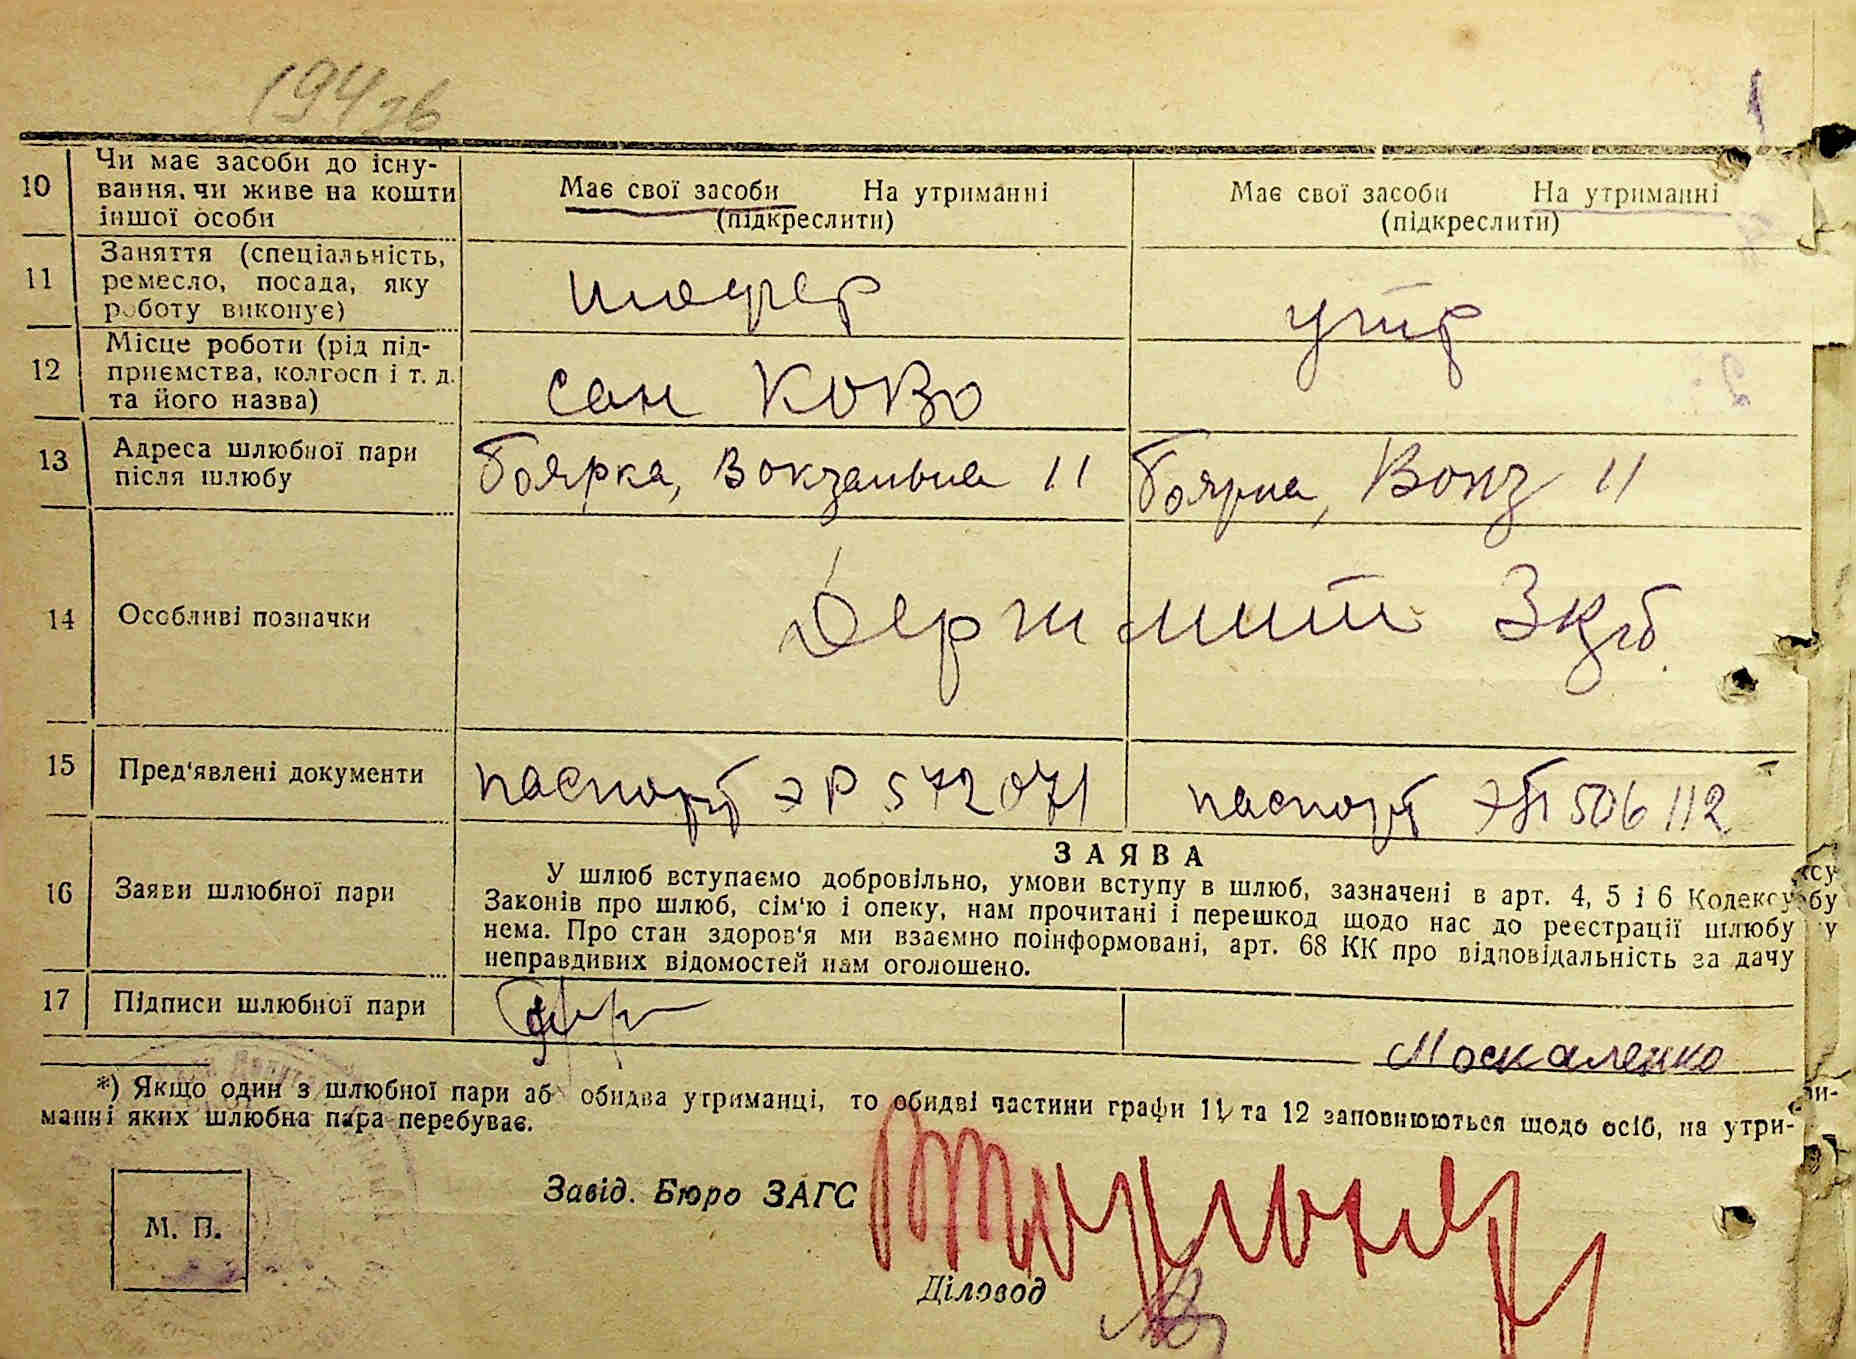 194зв
10 Чи має засоби до існу-
вання, чи живе на кошти
іншої особи
Має свої засоби На утриманні
(підкреслити)
Має свої засоби На утриманні
(підкреслити)
11 Заняття (спеціальність,
ремесло, посада, яку
роботу виконує)
шофер
утр
12 Місце роботи (рід під-
приємства, колгосп і т. д.
та його назва)
сан КОВО
13 Адреса шлюбної пари
після шлюбу
Боярка, Вокзальна 11
Боярка, Вокз 11
14 Особливі позначки
Держ мито 3крб.
15 Пред'явлені документи
паспорт ЭР 572071
паспорт ЭП 506112
ЗАЯВА
16 Заяви шлюбної пари
У шлюб вступаємо добровільно, умови вступу в шлюб, зазначені в арт. 4, 5 і 6 Кодексу
Законів про шлюб, сім'ю і опеку, нам прочитані і перешкод щодо нас до реєстрації шлюбу
нема. Про стан здоров'я ми взаємно поінформовані, арт. 68 КК про відповідальність за дачу
неправдивих відомостей нам оголошено.
17 Підписи шлюбної пари
Москаленко
*) Якщо один з шлюбної пари або обидва утриманці, то обидві частини графи 11 та 12 заповнюються щодо осіб, на утри-
манні яких шлюбна пара перебуває.
Завід. Бюро ЗАГС
М. П.
Діловод